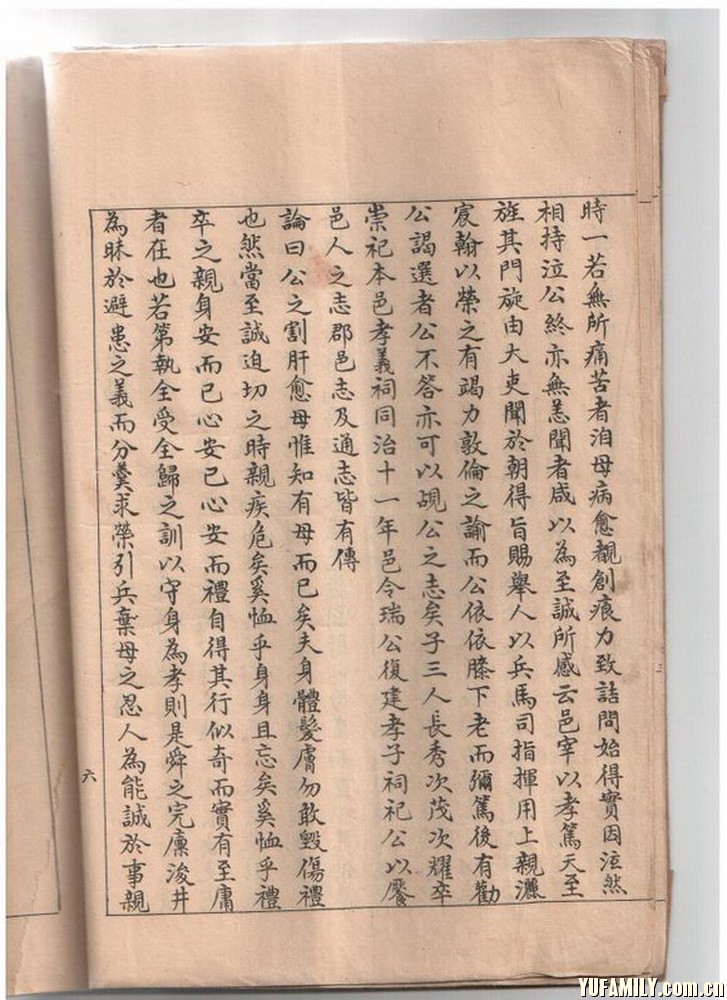 時一若無所痛苦者洎母病愈覩創痕力致詰問始得實因泫然
相持泣公終亦無恙聞者咸以為至誠所感云邑宰以孝篤天至
旌其門旋由大吏聞於朝得旨賜舉人以兵馬司指揮用上親灑
宸翰以榮之有竭力敦倫之諭而公依依膝下老而彌篤後有勸
公謁選者公不答亦可以覘公之志矣子三人長秀次茂次耀卒
崇祀本邑孝義祠同治十一年邑令瑞公復建孝子祠祀公以饜
邑人之志郡邑志及通志皆有傳
論曰公之割肝愈母惟知有母而已矣夫身體髮膚勿敢毀傷禮
也然當至誠迫切之時親疾危矣奚恤乎身身且忘矣奚恤乎禮
卒之親身安而已心安已心安而禮自得其行似奇而實有至庸
者在也若第執全受全歸之訓以守身為孝則是舜之完廩浚井
為昧於避患之義而分羹求榮引兵棄母之忍人為能誠於事親
六
YUFAMILY.com.cn